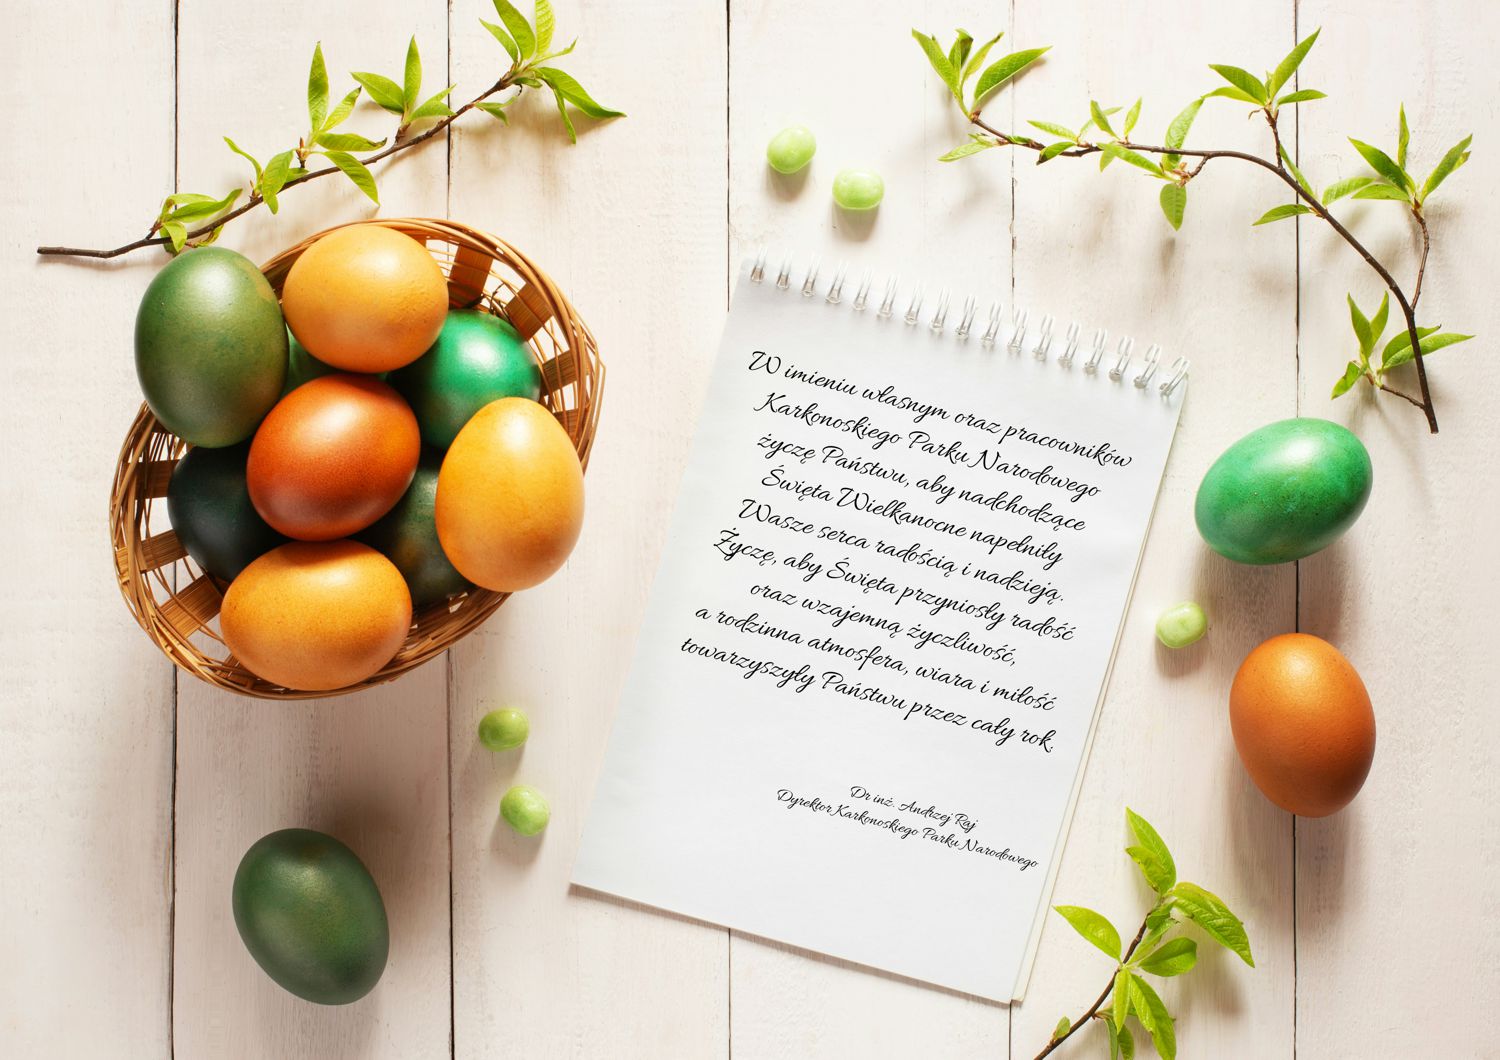 W imieniu własnym oraz pracowników
Karkonoskiego Parku Narodowego
życzę Państwu, aby nadchodzące
Święta Wielkanocne napełniły
Wasze serca radością i nadzieją.
Życzę, aby Święta przyniosły radość
oraz wzajemną życzliwość,
a rodzinna atmosfera, wiara i miłość
towarzyszyły Państwu przez cały rok.
Dr inż. Andrzej Raj
Dyrektor Karkonoskiego Parku Narodowego